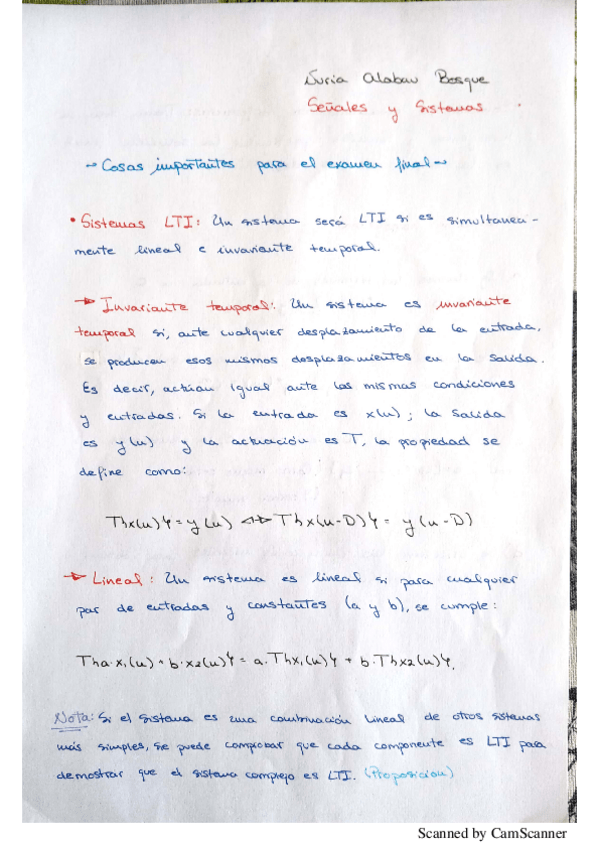 Nuria Alabau Bosque
Señales y Sistemas
→ Cosas importantes para el examen final ←
• Sistemas LTI: Un sistema será LTI si es simultanea-
mente lineal e invariante temporal.
→ Invariante temporal: Un sistema es invariante
temporal si, ante cualquier desplazamiento de la entrada,
se producen esos mismos desplazamientos en la salida.
Es decir, actúan igual ante las mismas condiciones
y entradas. Si la entrada es x(n); la salida
es y(n) y la actuación es T, la propiedad se
define como:
T{x(n)} = y(n) ↔ T{x(n-D)} = y(n-D)
→ Lineal: Un sistema es lineal si para cualquier
par de entradas y constantes (a y b), se cumple:
T{a·x₁(n) + b·x₂(n)} = a.T{x₁(n)} + b.T{x₂(n)}.
Nota: Si el sistema es una combinación lineal de otros sistemas
más simples, se puede comprobar que cada componente es LTI para
demostrar que el sistema complejo es LTI. (Proposición)
Scanned by CamScanner